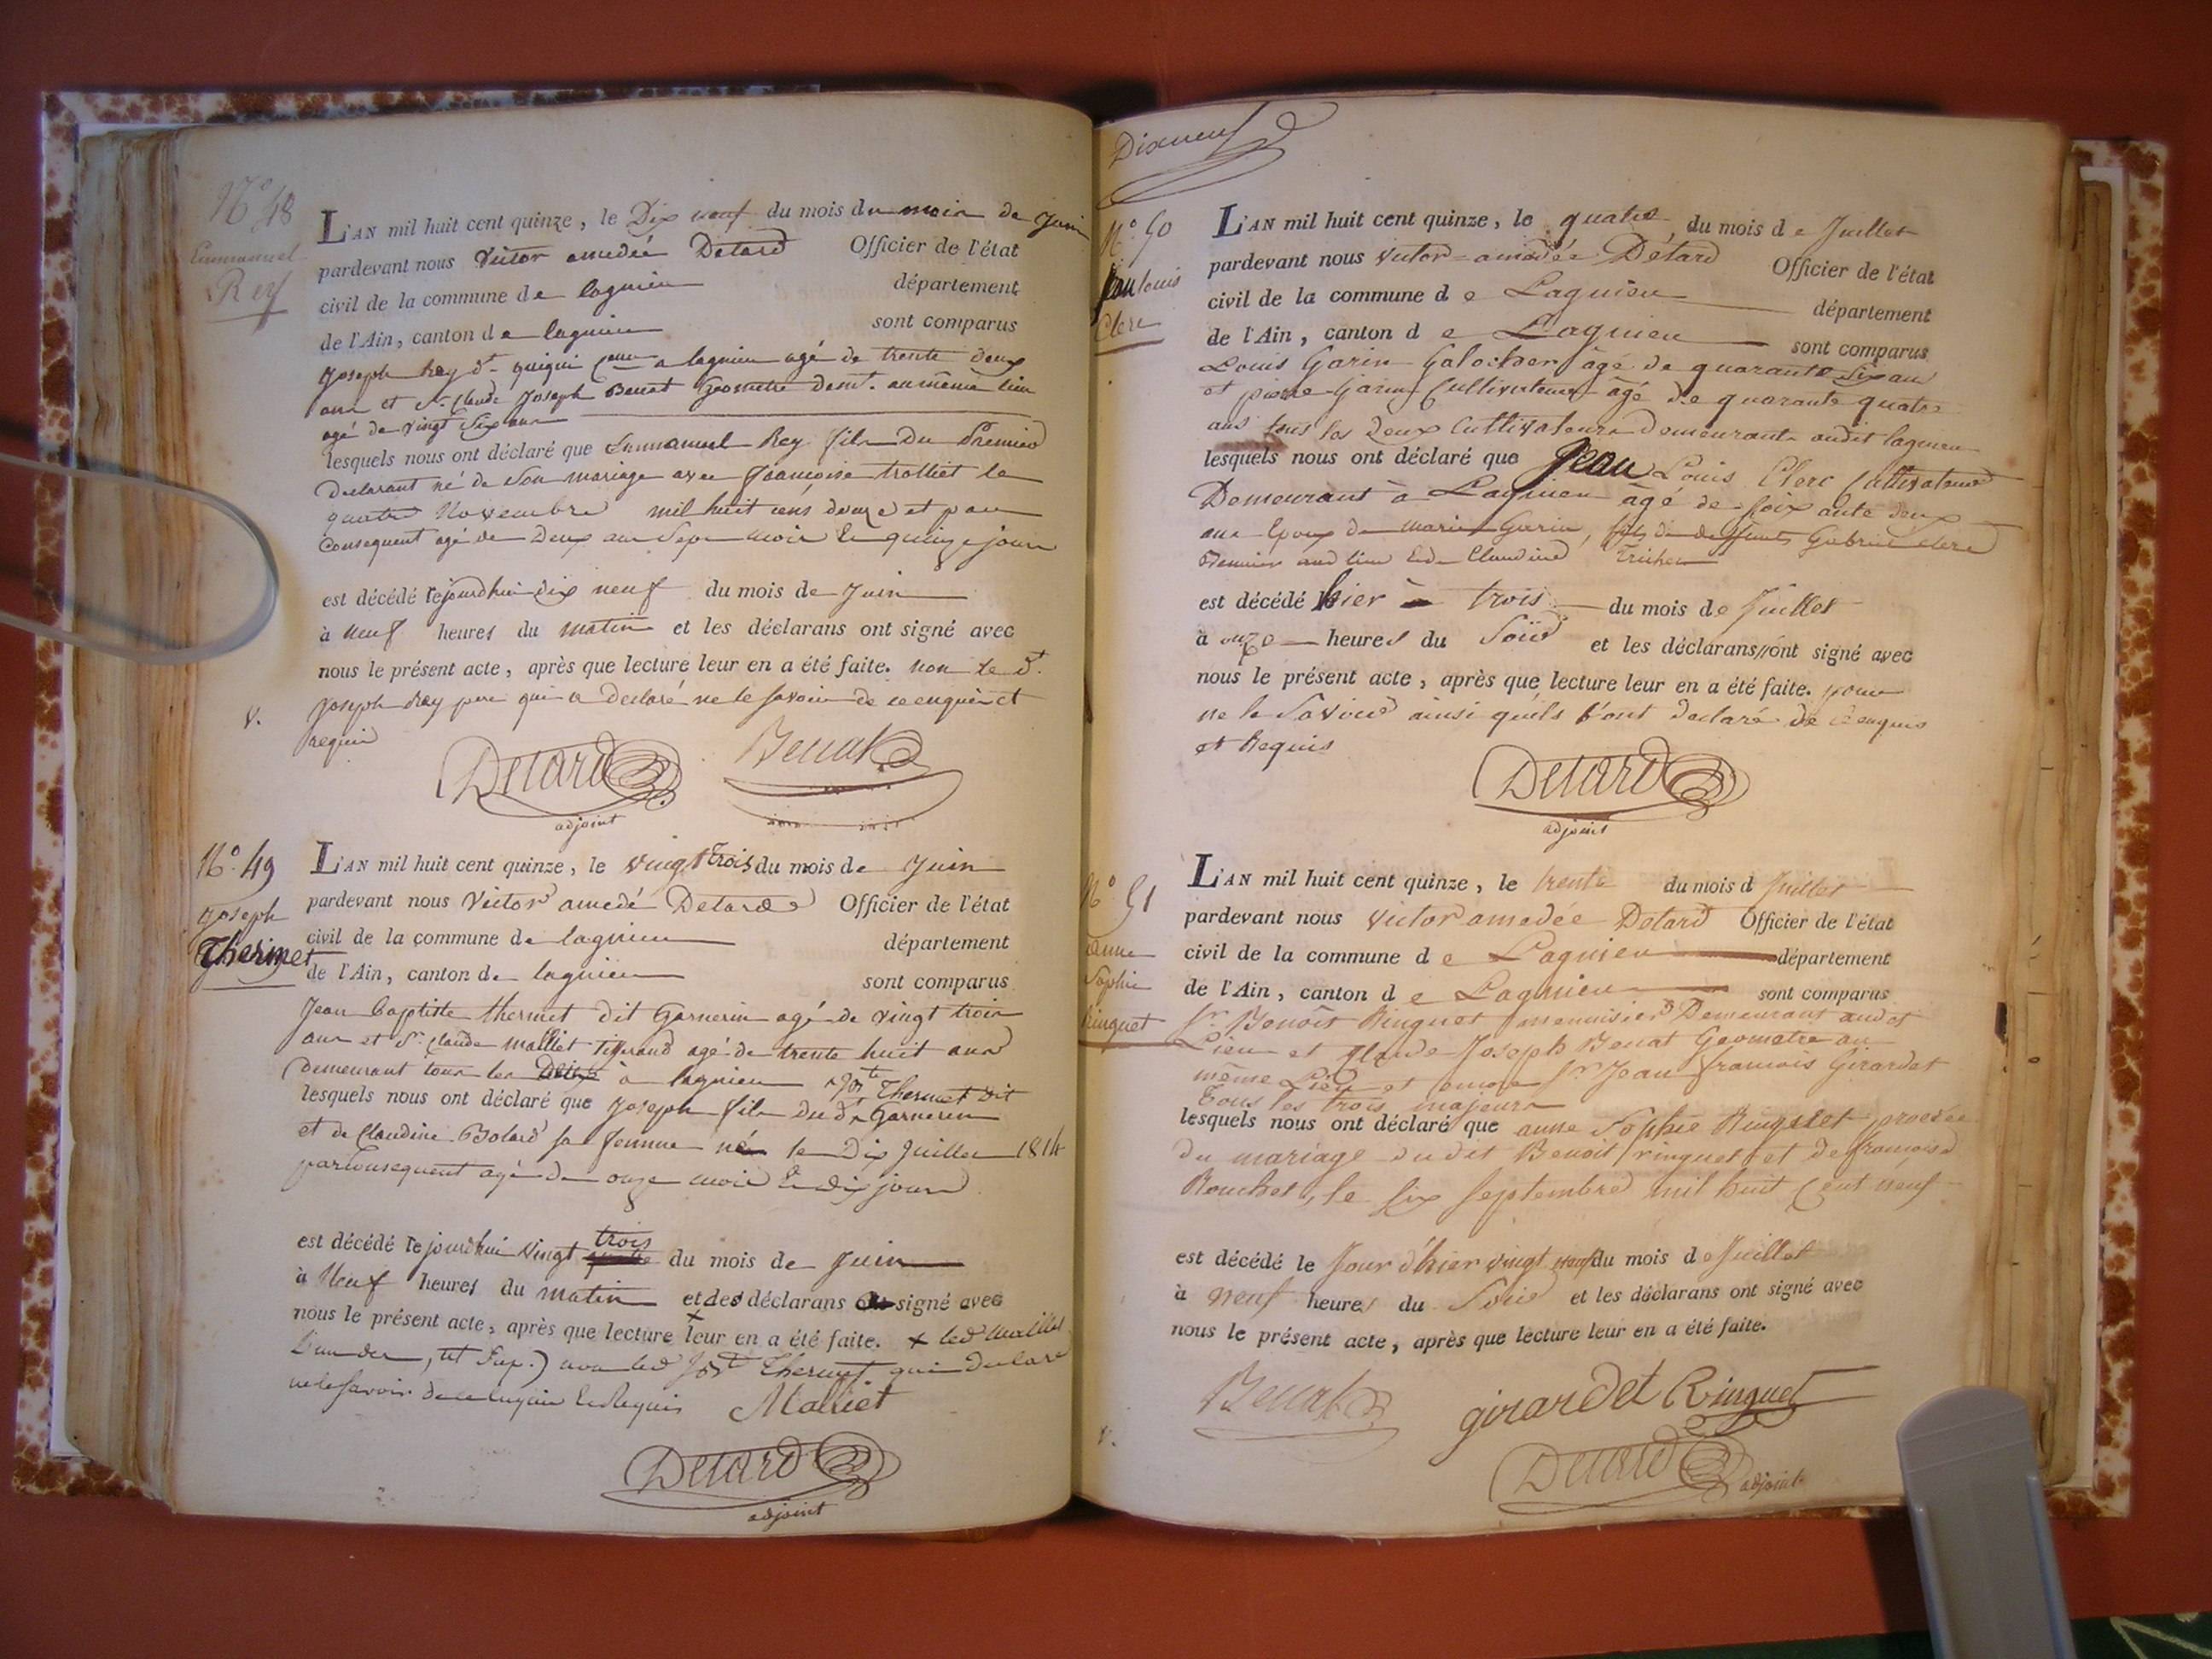 N° 48
Emmanuel
Rey
L'AN mil huit cent quinze, le Dix neuf du mois du mois de Juin
pardevant nous Victor amedée Detard Officier de l'état
civil de la commune de lagnieu département
de l'Ain, canton de lagnieu sont comparus
Joseph Rey dt a lagnieu agé de trente deux
ans et Sr Claude Joseph Benat Geometre demt. au même lieu
agé de vingt Six ans
lesquels nous ont déclaré que Emmanuel Rey fils Du Premier
Declarant né de Son mariage avec françoise trolliet le
quatre Novembre mil huit cens douze et par
Consequent agé de Deux ans Sept mois Et quinze jours
est décédé cejourdhui dix neuf du mois de Juin
à neuf heures du matin et les déclarans ont signé avec
nous le présent acte, après que lecture leur en a été faite. non le dt.
Joseph Rey pere qui a declaré ne le savoir de ce enquis et
requis
v.
Detard
adjoint
Benat
N° 49
Joseph
Thermet
L'AN mil huit cent quinze, le vingt trois du mois de Juin
pardevant nous Victor amedé Detard Officier de l'état
civil de la commune de lagnieu département
de l'Ain, canton de lagnieu sont comparus
Jean Baptiste thermet dit Garnerin agé de vingt trois
ans et Sr. Claude Malliet Tisserand agé de trente huit ans
demeurant tous les Deux à lagnieu
lesquels nous ont déclaré que Joseph fils dud. Thermet dit Garnerin
et de Claudine Bolard sa femme né le Dix Juillet 1814
par Consequent agé de onze mois Et dix jours
est décédé cejourdhui vingt trois du mois de Juin
à Neuf heures du matin et des déclarans signé avec
nous le présent acte, après que lecture leur en a été faite. x led Malliet
L'un des non led Thermet qui Declare
ne le savoir de ce Enquis Et Requis Malliet
Detard
adjoint
Dixneuf
N° 50
Jean louis
Clerc
L'AN mil huit cent quinze, le quatre du mois de Juillet
pardevant nous Victor-amedée Detard Officier de l'état
civil de la commune de Lagnieu département
de l'Ain, canton de Lagnieu sont comparus
Louis Garin Galocher agé de quarante Six ans
et pierre Garin Cultivateur agé de quarante quatre
ans tous les deux Cultivateurs demeurants audit lagnieu
lesquels nous ont déclaré que Jean Louis Clerc Cultivateur
Demeurant à Lagnieu âgé de soixante deux
ans Epoux de Marie Garin, fils de deffunts Gabriel clerc
aud lieu Et de Claudine
est décédé hier trois du mois de Juillet
à onze heures du Soir et les déclarans // ont signé avec
nous le présent acte, après que lecture leur en a été faite. pour
ne le Savoir ainsi qu'ils l'ont declaré de ce enquis
et Requis
Detard
adjoint
N° 51
anne
Sophie
Ringuet
L'AN mil huit cent quinze, le trente du mois d Juillet
pardevant nous Victor amedée Detard Officier de l'état
civil de la commune de Lagnieu département
de l'Ain, canton de Lagnieu sont comparus
Sr. Benoit Ringuet menuisier Demeurant audit
Lieu et Claude-Joseph Benat Geometre au
même Lieu et encore Sr Jean françois Girardet
Tous les trois majeurs
lesquels nous ont déclaré que anne Sophie Ringuet procrée
du mariage dudit Benoit ringuet et de françoise
Rouchet, le six septembre mil huit Cent neuf
est décédé le Jour d'hier vingt neuf du mois de Juillet
à neuf heures du Soir et les déclarans ont signé avec
nous le présent acte, après que lecture leur en a été faite.
Benat
girardet Ringuet
v.
Detard
adjoint